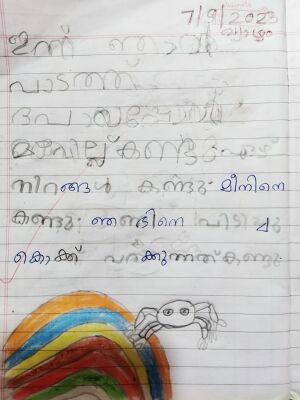 7/9/2023
വ്യാഴം
ഇന്ന് ഞാൻ
പാടത്ത്
മഴവില്ല് കണ്ടു ഏഴ്
നിറങ്ങൾ കണ്ടു മീനിനെ
കണ്ടു ഞണ്ടിനെ പിടിച്ചു
കൊക്ക് പറക്കുന്നത് കണ്ടു